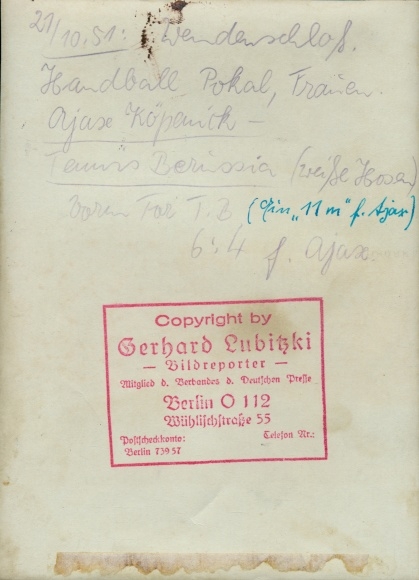 21/10.51: Wendenschloß.
Handball Pokal, Frauen.
Ajax Köpenick –
Tennis Borussia (weiße Hosen)
vorm Tor T.B (Ein „11 m" f. Ajax)
6:4 f. Ajax
Copyright by
Gerhard Lubitzki
— Bildreporter —
Mitglied d. Verbandes d. Deutschen Presse
Berlin O 112
Wühlischstraße 55
Postscheckkonto: Telefon Nr.:
Berlin 739 57